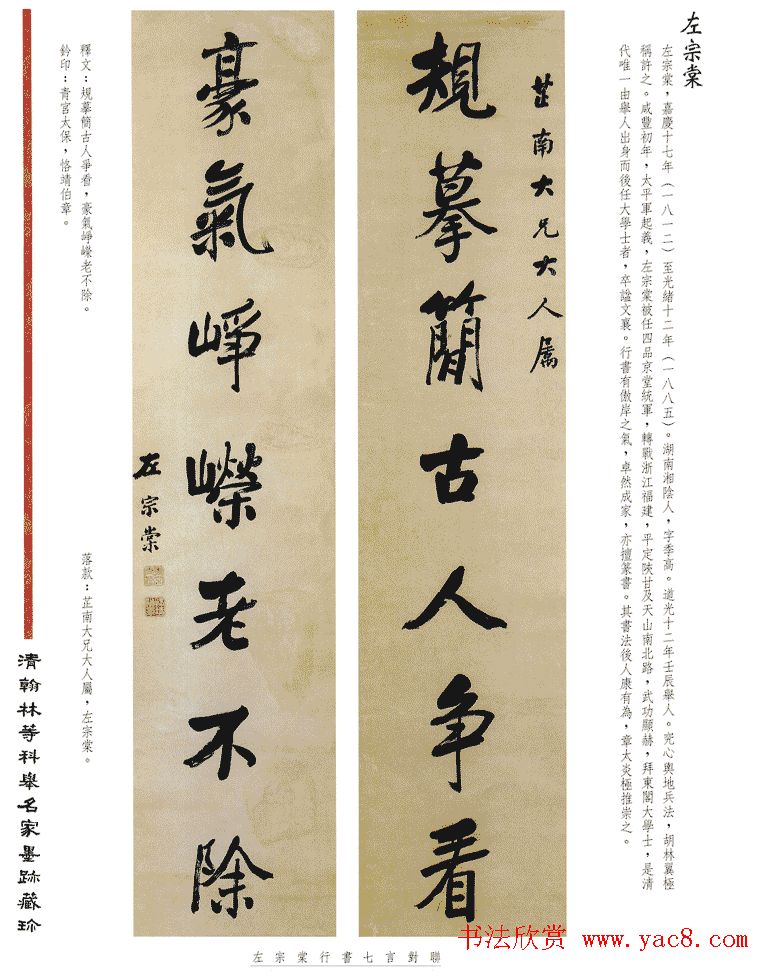 左宗棠
左宗棠，嘉慶十七年（一八一二）至光緒十二年（一八八五）。湖南湘陰人，字季高。道光十二年壬辰舉人。究心輿地兵法，胡林翼極
稱許之。咸豐初年，太平軍起義，左宗棠被任四品京堂統軍，轉戰浙江福建，平定陝甘及天山南北路，武功顯赫，拜東閣大學士，是清
代唯一由舉人出身而後任大學士者，卒謚文襄。行書有傲岸之氣，卓然成家，亦擅篆書。其書法後人康有為，章太炎極推崇之。
芷南大兄大人属
規摹簡古人争看
豪氣崢嶸老不除
左宗棠
釋文：規摹簡古人爭看，豪氣崢嶸老不除。
鈐印：青宮太保，恪靖伯章。
落款：芷南大兄大人屬，左宗棠。
清翰林等科舉名家墨跡藏珍
左宗棠行書七言對聯
书法欣赏 www.yac8.com